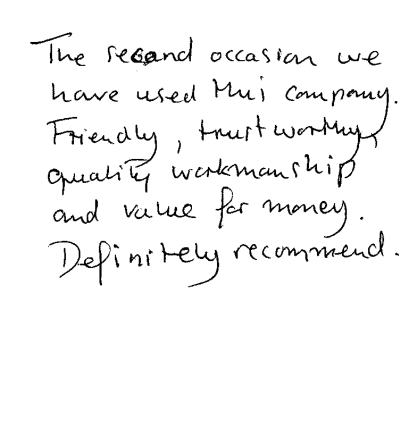 The second occasion we
have used this company.
Friendly, trustworthy,
quality workmanship
and value for money.
Definitely recommend.